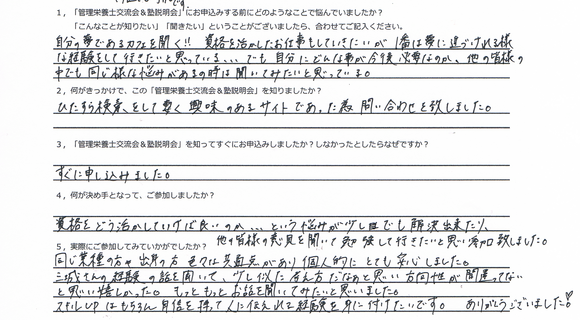 1，「管理栄養士交流会＆塾説明会」にお申込みする前にどのようなことで悩んでいましたか？
「こんなことが知りたい」「聞きたい」ということがございましたら、合わせてご記入ください。
自分の夢であるカフェを開く!! 資格を活かしたお仕事もしていきたいが 1番は夢に近づけれる様
な経験をして行きたいと思っている、、、でも 自分にどんな事が今後 必要なのか、他の皆様の
中でも 同じ様な悩みがあるの時は 聞いてみたいと思っている。
2，何がきっかけで、この「管理栄養士交流会＆塾説明会」を知りましたか？
ひたすら検索をして 興味のあるサイトであった為 問い合わせを致しました。
3，「管理栄養士交流会＆塾説明会」を知ってすぐにお申込みしましたか？しなかったとしたらなぜですか？
すぐに申し込みました。
4，何が決め手となって、ご参加しましたか？
資格をどう活かしていけば良いのか、、、という悩みが少しでも 解決出来たり、
他の皆様の意見を聞いて 勉強して行きたいと思い参加致しました。
5，実際にご参加してみていかがでしたか？
同じ業種の方や 出身の方 色々な共通点があり 個人的に とても安心しました。
三城さんの経験の話を聞いて、少し似た考え方だなあと思い 方向性が 間違ってない
と思い 嬉しかった。 もっともっと お話を聞いてみたいと思いました。
スキルUPはもちろん 自信を持って人に伝えれる経験を身に付けたいです。 ありがとうございました!